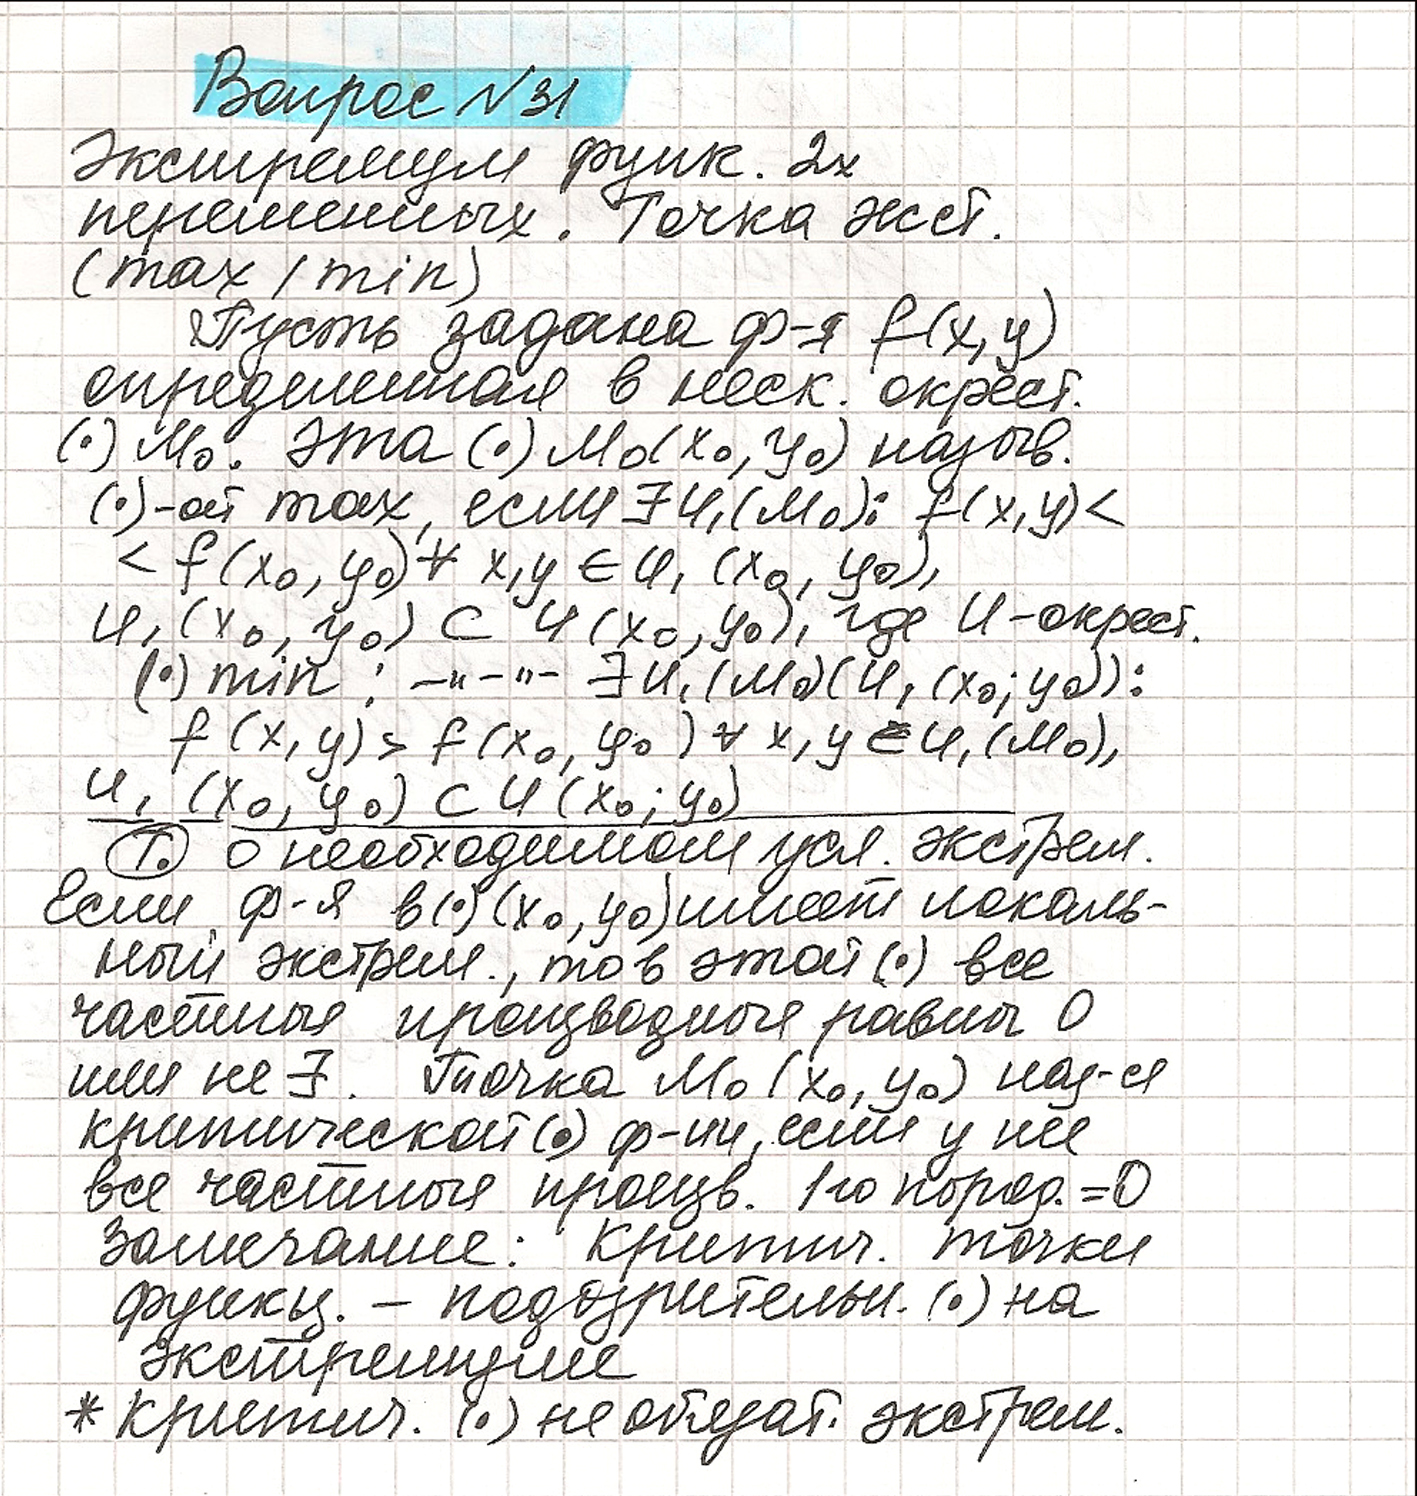 Вопрос №31
Экстремум функ. 2х
переменных. Точка экст.
(max / min)
Пусть задана ф-я f(x,y)
определенная в неск. окрест.
(•) M₀. Эта (•) M₀(x₀,y₀) назыв.
(•)-ой max, если ∃ U₁(M₀): f(x,y)<
< f(x₀,y₀) ∀ x,y ∈ U₁(x₀,y₀),
U₁(x₀,y₀) ⊂ U(x₀,y₀), где U-окрест.
(•) min : -"-"- ∃ U₁(M₀)(U₁(x₀;y₀)):
f(x,y) > f(x₀,y₀) ∀ x,y ∈ U₁(M₀),
U₁(x₀,y₀) ⊂ U(x₀;y₀)
Т. о необходимом усл. экстрем.
Если ф-я в (•) (x₀,y₀) имеет локаль-
ный экстрем., то в этой (•) все
частные производные равны 0
или не ∃. Точка M₀(x₀,y₀) наз-ся
критической (•) ф-ии, если у нее
все частные произв. 1го поряд. =0
Замечание: Критич. точки
функц. – подозрительн. (•) на
экстремуме
* Критич. (•) не обязат. экстрем.